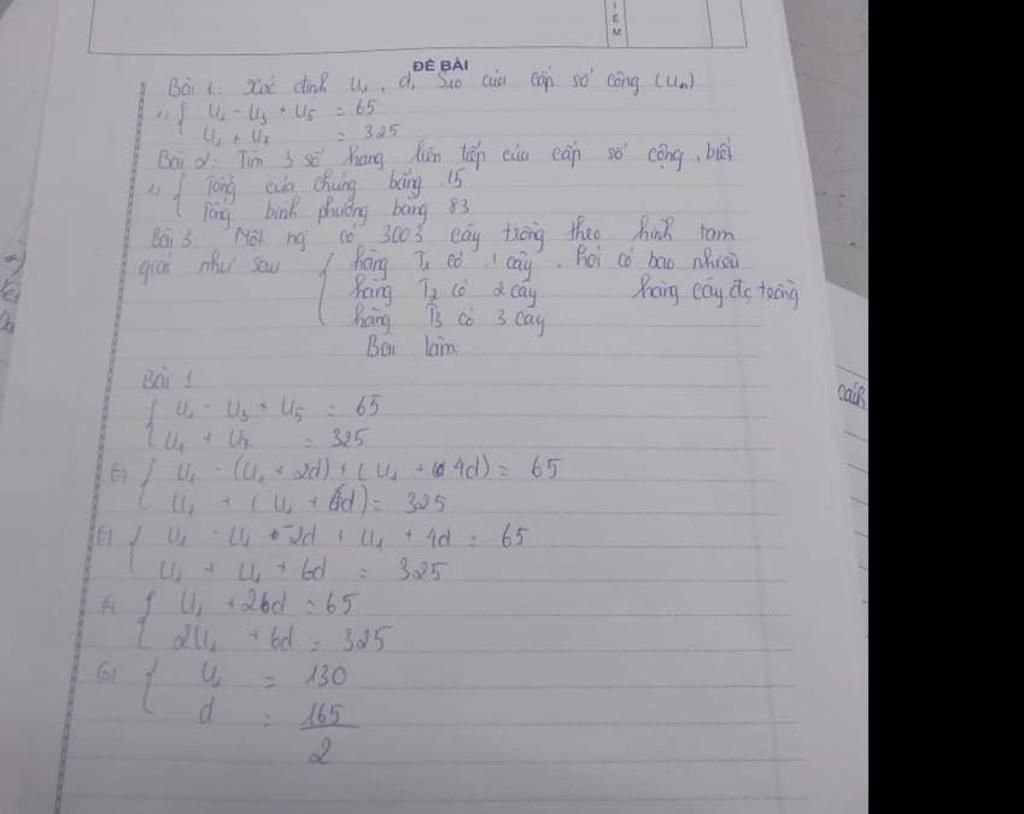 I
Ể
M
ĐỀ BÀI
Bài 1: Xác định U₁, d, S₁₀ của cấp số cộng (Uₙ)
1) { U₁ - U₃ + U₅ = 65
U₁ + U₇ = 325
Bài 2: Tìm 3 số hạng liên tiếp của cấp số cộng, biết
1) { Tổng của chúng bằng 15
Tổng bình phương bằng 83
Bài 3: Một ng có 3003 cây trồng theo hình tam
giác như sau { hàng T₁ có 1 cây. Hỏi có bao nhiêu
hàng T₂ có 2 cây hàng cây đc trồng
hàng T₃ có 3 cây
Bài làm
Bài 1
{ U₁ - U₃ + U₅ = 65
U₁ + U₇ = 325
⇔ { U₁ - (U₁ + 2d) + (U₁ + 4d) = 65
U₁ + (U₁ + 6d) = 325
⇔ { U₁ - U₁ - 2d + U₁ + 4d = 65
U₁ + U₁ + 6d = 325
⇔ { U₁ + 2d = 65
2U₁ + 6d = 325
⇔ { U₁ = 130
d = 165
2
cách